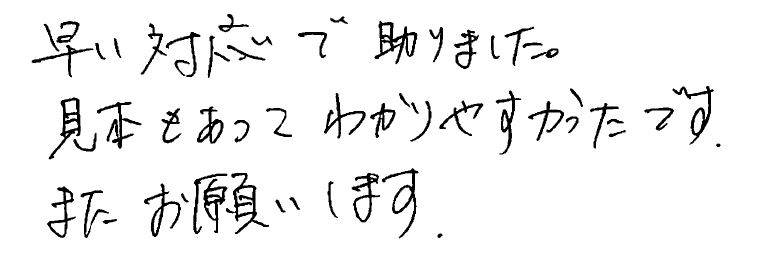 早い対応で助りました。
見本もあってわかりやすかったです.
またお願いします.